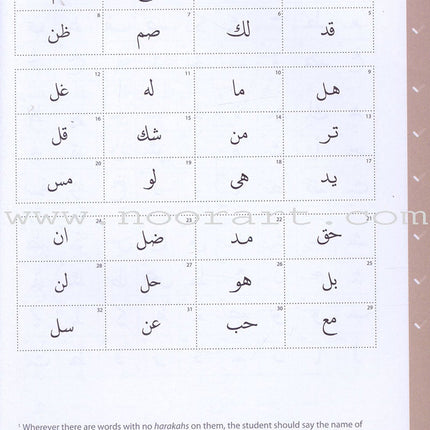 5 قد 6 لك 7 صم 8 ظن
9 هل 10 ما 11 له 12 غل
13 تر 14 من 15 شك 16 قل
17 يد 18 هى 19 لو 20 مس
21 حق 22 مد 23 ضل 24 ان
25 بل 26 هو 27 حل 28 لن
29 مع 30 حب 31 عن 32 سل
www.noorart.com
¹ Wherever there are words with no harakahs on them, the student should say the name of